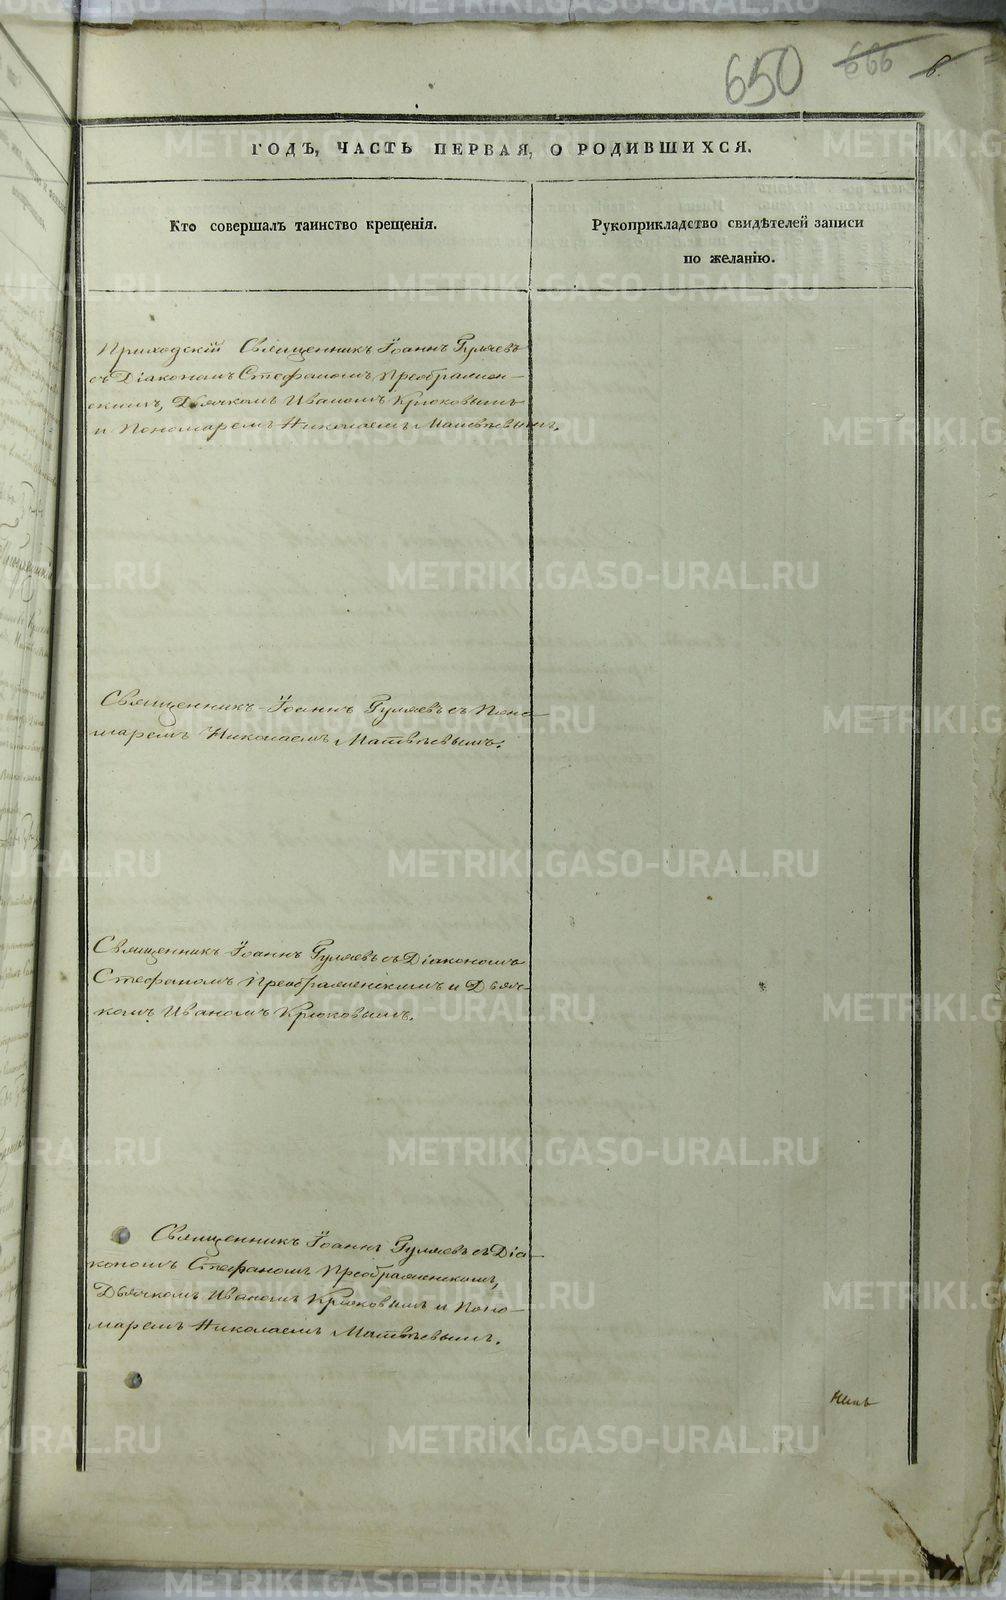 650 666 6.
ГОДЪ, ЧАСТЬ ПЕРВАЯ, О РОДИВШИХСЯ.
Кто совершалъ таинство крещенія.
Рукоприкладство свидѣтелей записи
по желанію.
Приходскій Священникъ Іоаннъ Гуляевъ
съ Діакономъ Стефаномъ Преображен-
скимъ, Дьячкомъ Иваномъ Крюковымъ
и Пономаремъ Николаемъ Матвѣевымъ.
Священникъ Іоаннъ Гуляевъ съ Поно-
маремъ Николаемъ Матвѣевымъ.
Священникъ Іоаннъ Гуляевъ съ Діакономъ
Стефаномъ Преображенскимъ и Дьяч-
комъ Иваномъ Крюковымъ.
Священникъ Іоаннъ Гуляевъ съ Діа-
кономъ Стефаномъ Преображенскимъ,
Дьячкомъ Иваномъ Крюковымъ и Поно-
маремъ Николаемъ Матвѣевымъ.
METRIKI.GASO-URAL.RU